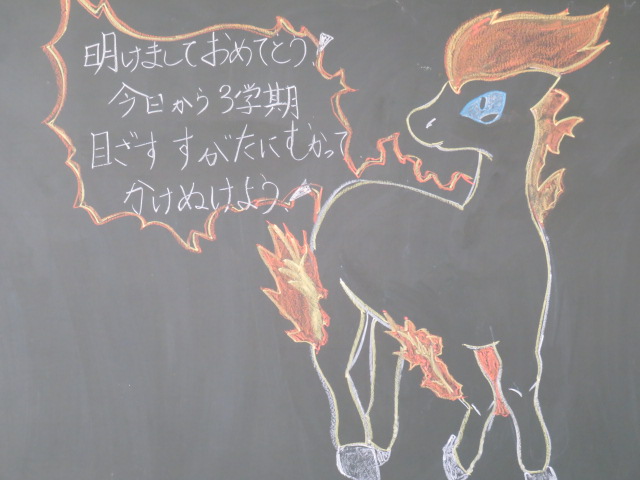 明けましておめでとう!
今日から3学期
目ざす すがたにむかって
かけぬけよう!